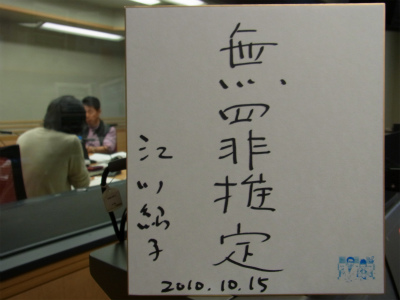 無罪推定
江川紹子
2010.10.15